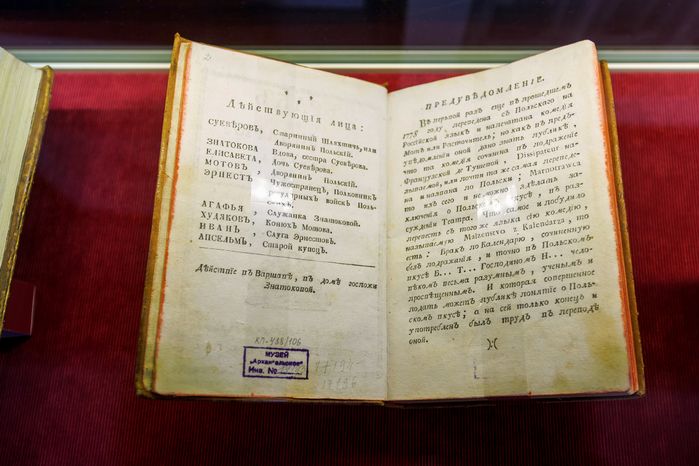 Дѣйствующія лица:
СУЕВѢРОВЪ, Старинный Шляхтичь, или
Дворянинъ Польскій.
ЗНАТОКОВА Вдова, сестра Суевѣрова.
ЕЛИСАВЕТА, Дочь Суевѣрова.
МОТОВЪ, Дворянинъ Польскій.
ЭРНЕСТЪ, Чужестранецъ, Полковникъ
регулярныхъ войскъ Поль-
скихъ.
АГАФЬЯ, Служанка Знатоковой.
ХУДЯКОВЪ, Конюхъ Мотова.
ИВАНЪ, Слуга Эрнестовъ.
АНСЕЛЬМЪ, Старой купецъ.
Дѣйствіе въ Варшавѣ, въ домѣ госпожи
Знатоковой.
КП-438/106
МУЗЕЙ
"Архангельское"
Инв. №
ПРЕДУВѢДОМЛЕНІЕ.
Въ первой разъ еще въ прошедшемъ
1778 году переведена съ Польскаго на
Россійской языкъ и напечатана комедія
Мотъ или Расточитель; но какъ въ предъ-
увѣдомленіи оной дано знать публикѣ,
что та комедія сочинена въ подражаніе
Французской де Тушевой, Dissipateur на-
зываемой, или почти та же самая переведе-
на и названа по Польски; Marnotrawca
то изъ сего и не можно здѣлать за-
ключенія о Польскомъ вкусѣ, въ раз-
сужденіи Театра. Что самое и побудило
перевесть съ того же языка сію комедію,
называемую Małżeństwo z Kalendarza, то
есть: Бракъ по Календарю, сочиненную
безъ подражанія, и точно въ Польскомъ
вкусѣ Б... Т... Господиномъ Н... чело-
вѣкомъ весьма разумнымъ, ученымъ и
просвѣщеннымъ. И которая совершенное
подать можетъ публикѣ понятіе о Поль-
скомъ вкусѣ; а на сей только конецъ и
употребленъ былъ трудъ въ переводѣ
оной.